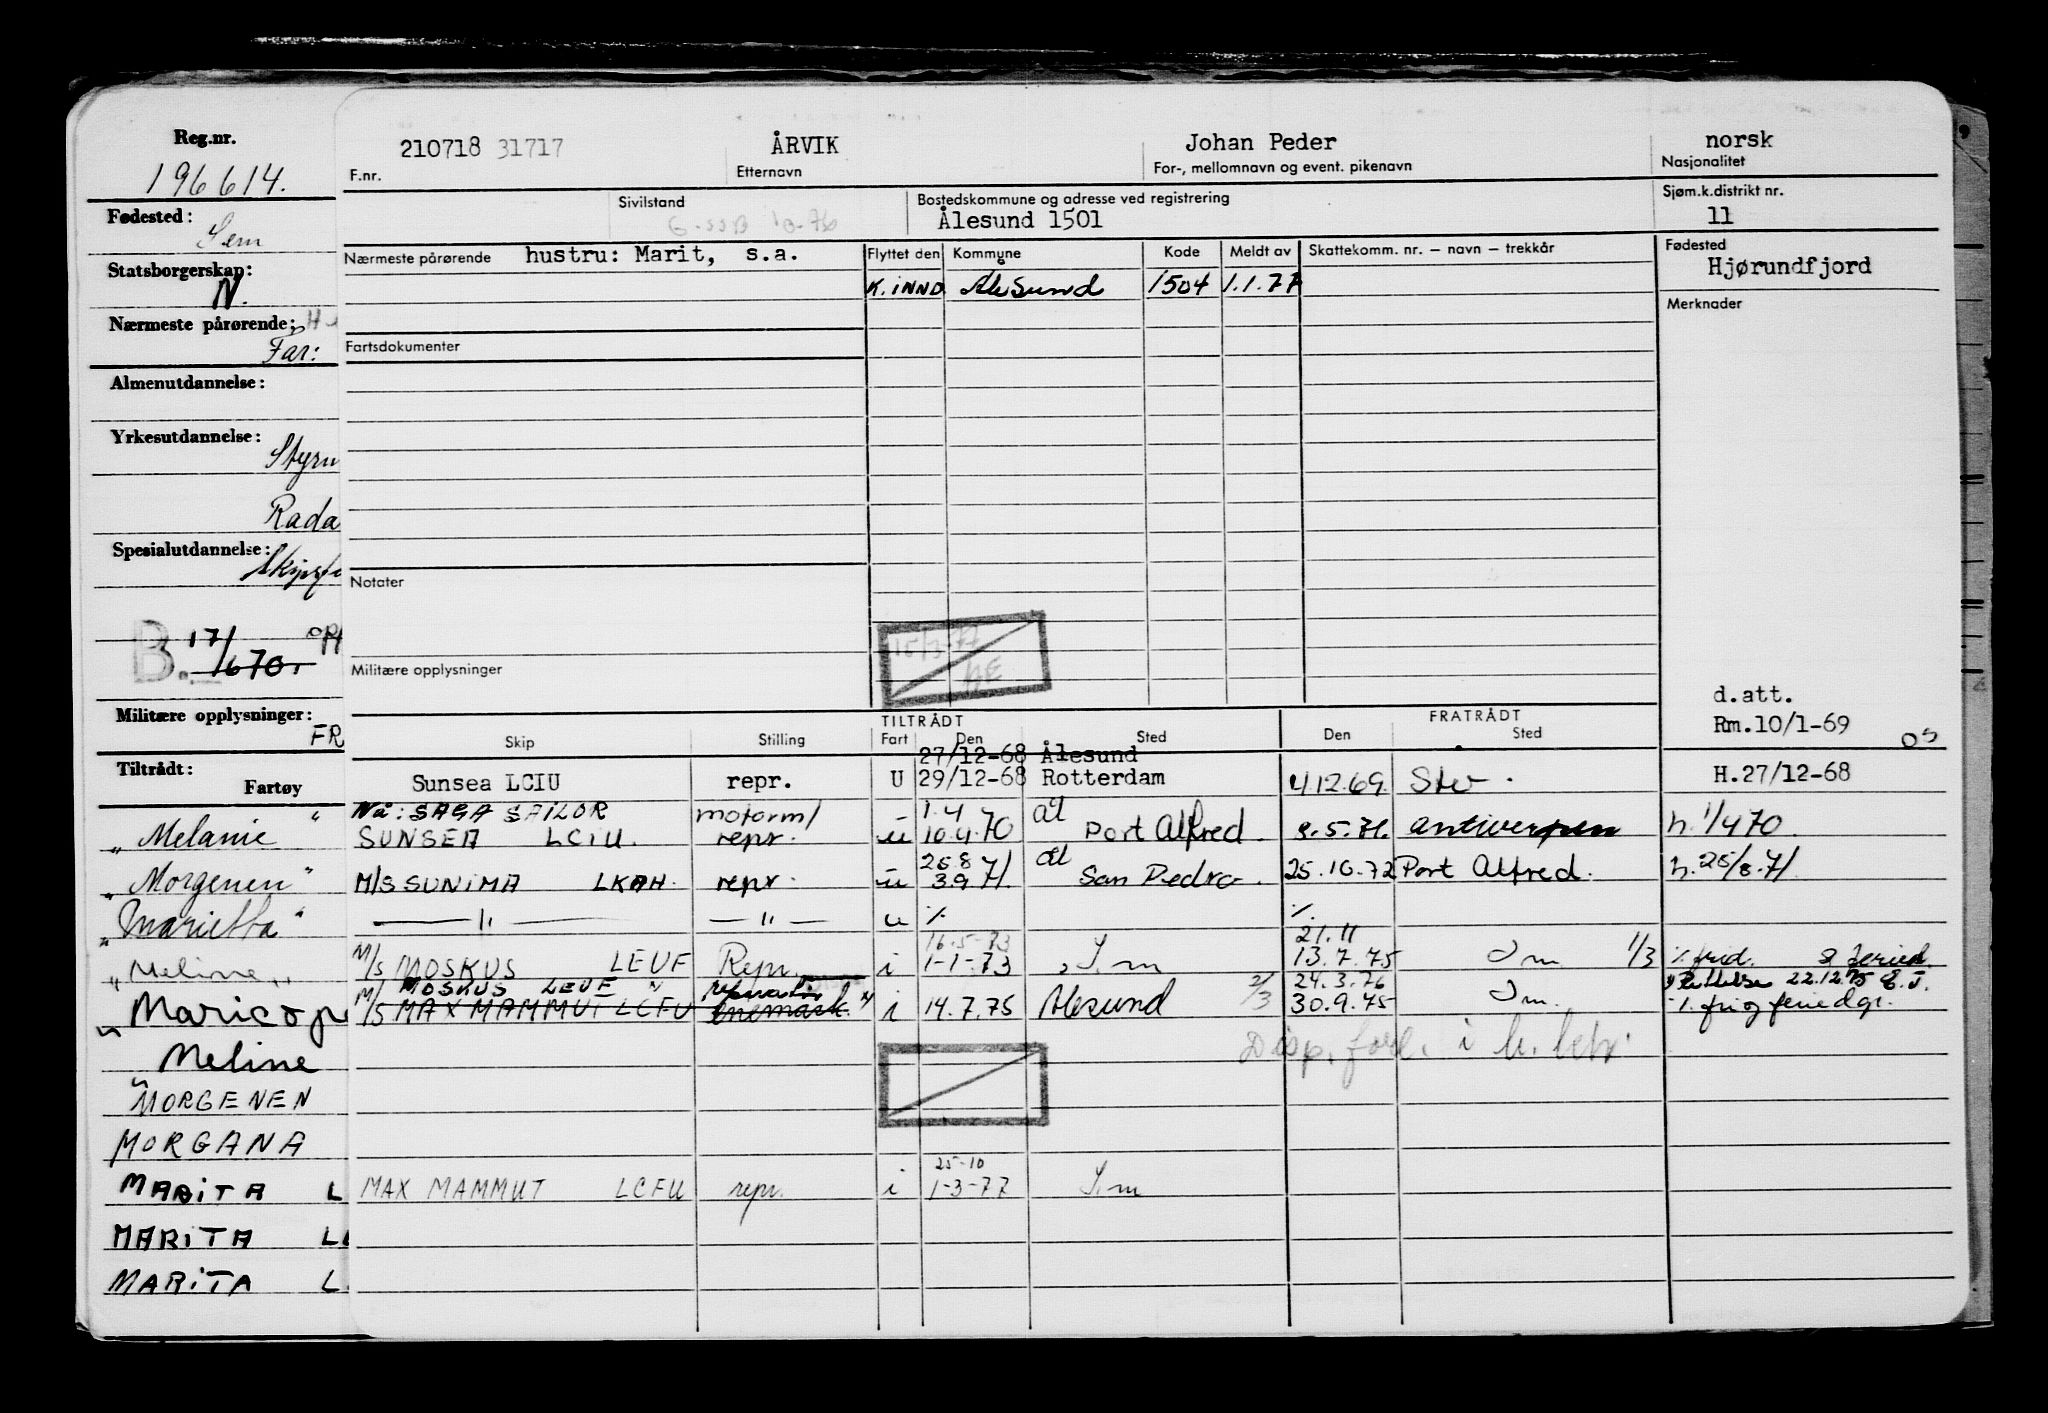 Reg.nr.
196614.
Fødested:
Sem
Statsborgerskap:
N.
Nærmeste pårørende:
Far:
Almenutdannelse:
Yrkesutdannelse:
Spesialutdannelse:
B. 17/
1670.
Militære opplysninger:
FR
Tiltrådt:
Fartøy
„ Melanie "
„ Morgenen "
„ Marietta "
„ Meline „
Meline
MORGENEN
MORGANA
MARITA L
MARITA L
MARITA L
210718 31717 ÅRVIK Johan Peder norsk
F.nr. Etternavn For-, mellomnavn og event. pikenavn Nasjonalitet
Sivilstand Bostedskommune og adresse ved registrering Sjøm.k.distrikt nr.
Ålesund 1501 11
Nærmeste pårørende hustru: Marit, s.a. Flyttet den Kommune Kode Meldt av Skattekomm. nr. – navn – trekkår Fødested
Hjørundfjord
K. INND. Ålesund 1504 1.1.77
Merknader
Fartsdokumenter
Notater
15/3-77
Militære opplysninger
d.att.
Rm.10/1-69
TILTRÅDT FRATRÅDT
Skip Stilling Fart Den Sted Den Sted
27/12-68 Ålesund
Sunsea LCIU repr. U 29/12-68 Rotterdam 4.12.69. H.27/12-68
Nå: SAGA SAILOR motorm/ 1.4 ål
SUNSEA LCIU. repr. u 10.4.70 Port Alfred. 8.5.71. Antwerpen h. 1/4 70.
25.8 ål
M/S SUNIMA LKAH. repr. u 3.9 71. San Pedro. 25.10.72 Port Alfred. h. 25/8.71.
— " — — " — u %. %.
16.5-73 21.11
M/S MOSKUS LEUF Repr. i 1-1-73 13.7.75 1/3
M/S MOSKUS LEUF 24.3.76 22.12.75
M/S MAX MAMMUT LCFU i 14.7.75 Ålesund 2/3 30.9.75
Disp. ford. i
25-10
MAX MAMMUT LCFU repr. i 1-3-77